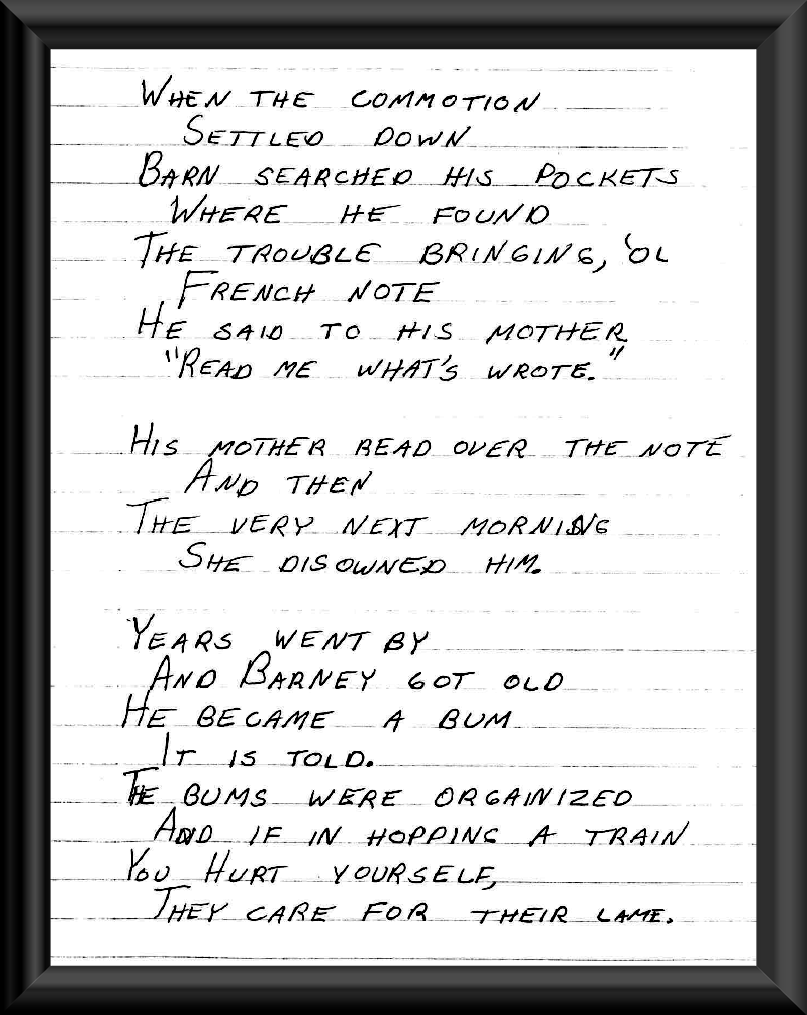 WHEN THE COMMOTION
SETTLED DOWN
BARN SEARCHED HIS POCKETS
WHERE HE FOUND
THE TROUBLE BRINGING, 'OL
FRENCH NOTE
HE SAID TO HIS MOTHER
"READ ME WHAT'S WROTE."
HIS MOTHER READ OVER THE NOTE
AND THEN
THE VERY NEXT MORNING
SHE DISOWNED HIM.
YEARS WENT BY
AND BARNEY GOT OLD
HE BECAME A BUM
IT IS TOLD.
THE BUMS WERE ORGANIZED
AND IF IN HOPPING A TRAIN
YOU HURT YOURSELF,
THEY CARE FOR THEIR LAME.